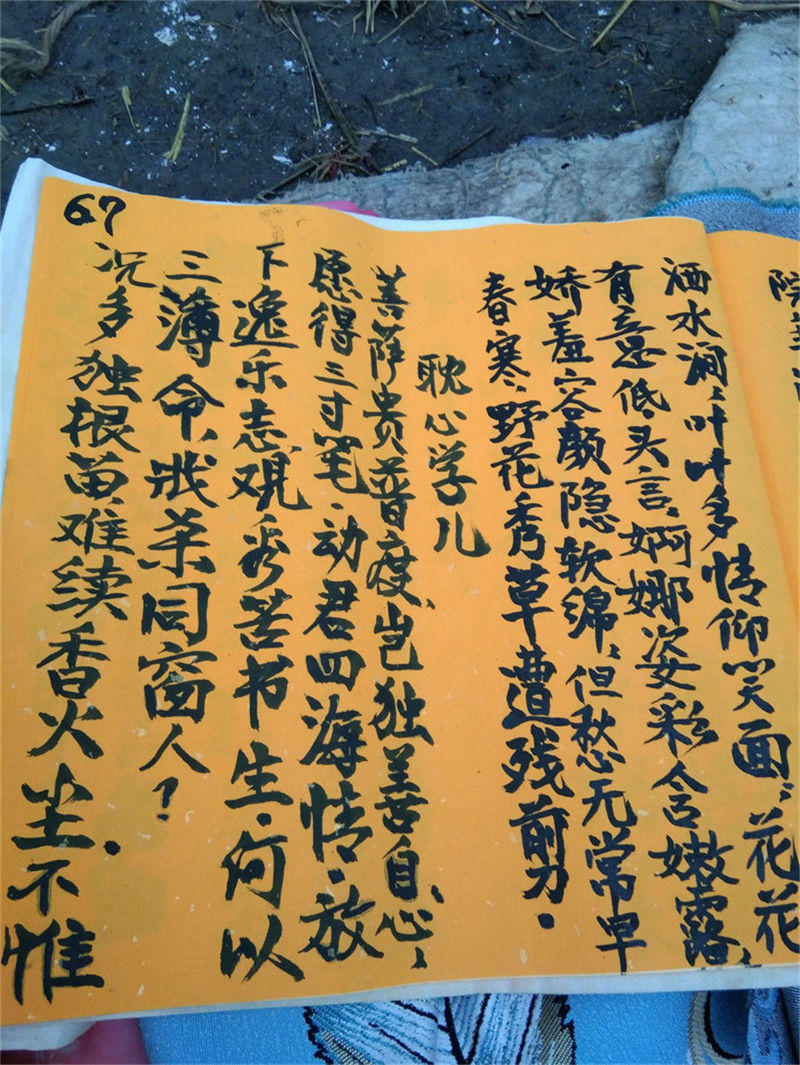 67
院
洒水涧，叶叶多情仰笑面，花花
有意低头言，婀娜姿彩含嫩露，
娇羞容颜隐软绵，但愁无常早
春寒，野花秀草遭残剪。
耽心学儿
菩萨贵普度，岂独善自心，
愿得三寸笔，动君四海情，放
下逸乐志，观秀苦书生，何以
三薄命，戕杀同窗人？
况多独根苗，难续香火尘。不惟